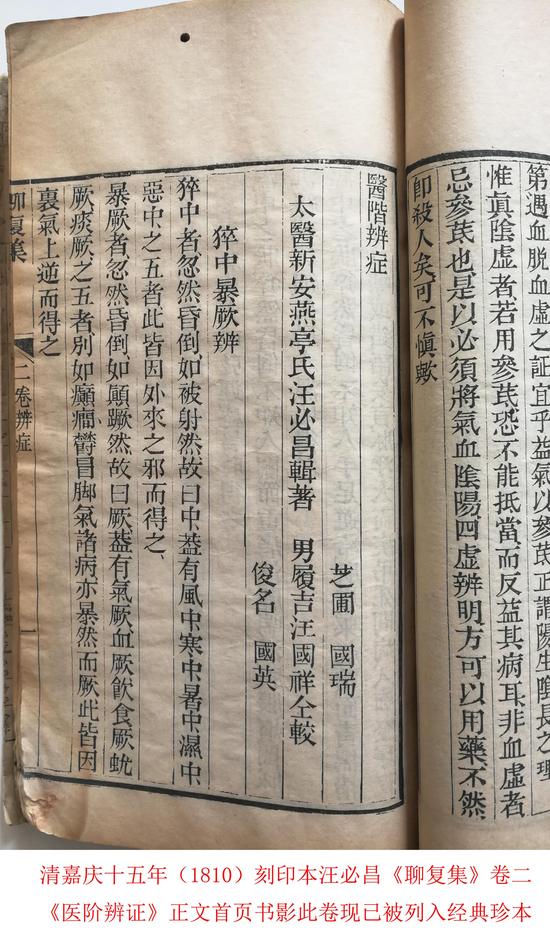 第遇血脫血虛之証宜乎益氣以參芪正謂陽生陰長之理
惟眞陰虛者若用參芪恐不能抵當而反益其病耳非血虛者
忌參芪也是以必須將氣血陰陽四虛辨明方可以用藥不然
卽殺人矣可不愼歟
醫階辨症
芝圃 國瑞
太醫新安燕亭氏汪必昌輯著 男履吉汪國祥仝較
俊名 國英
猝中暴厥辨
猝中者忽然昏倒如被射然故曰中葢有風中寒中暑中濕中
惡中之五者此皆因外來之邪而得之、
暴厥者忽然昏倒如顛蹶然故曰厥葢有氣厥血厥飮食厥蚘
厥痰厥之五者別如癲癇鬱冒脚氣諸病亦暴然而厥此皆因
裏氣上逆而得之
聊復集 二卷辨症 一
清嘉庆十五年（1810）刻印本汪必昌《聊复集》卷二
《医阶辨证》正文首页书影此卷现已被列入经典珍本